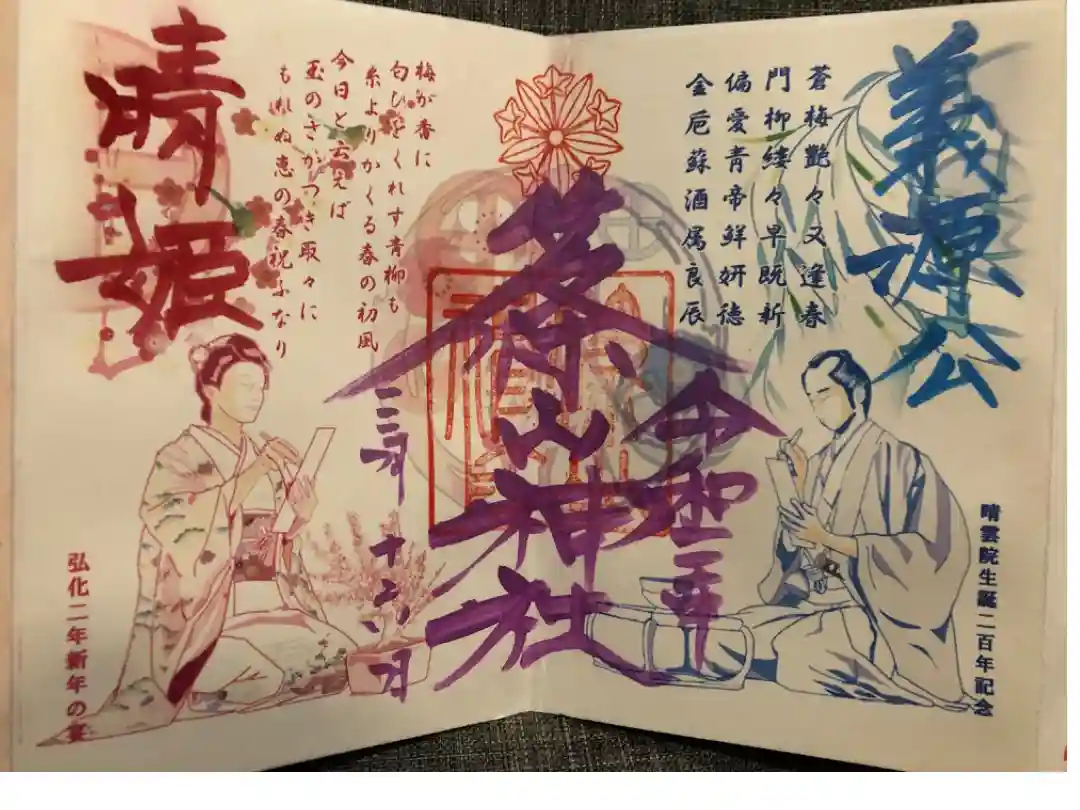 義源公
蒼梅艶々又逢春
門柳縷々早既新
偏愛青帝鮮妍徳
金巵蘇酒属良辰
晴雲院生誕二百年記念
令和三年
篠山神社
三月
十六日
梅が香に
匂ひをくれす青柳も
糸よりかくる春の初風
今日と云えば
玉のさかつき取々に
もれぬ恵の春祝ふなり
晴姫
弘化二年新年の宴